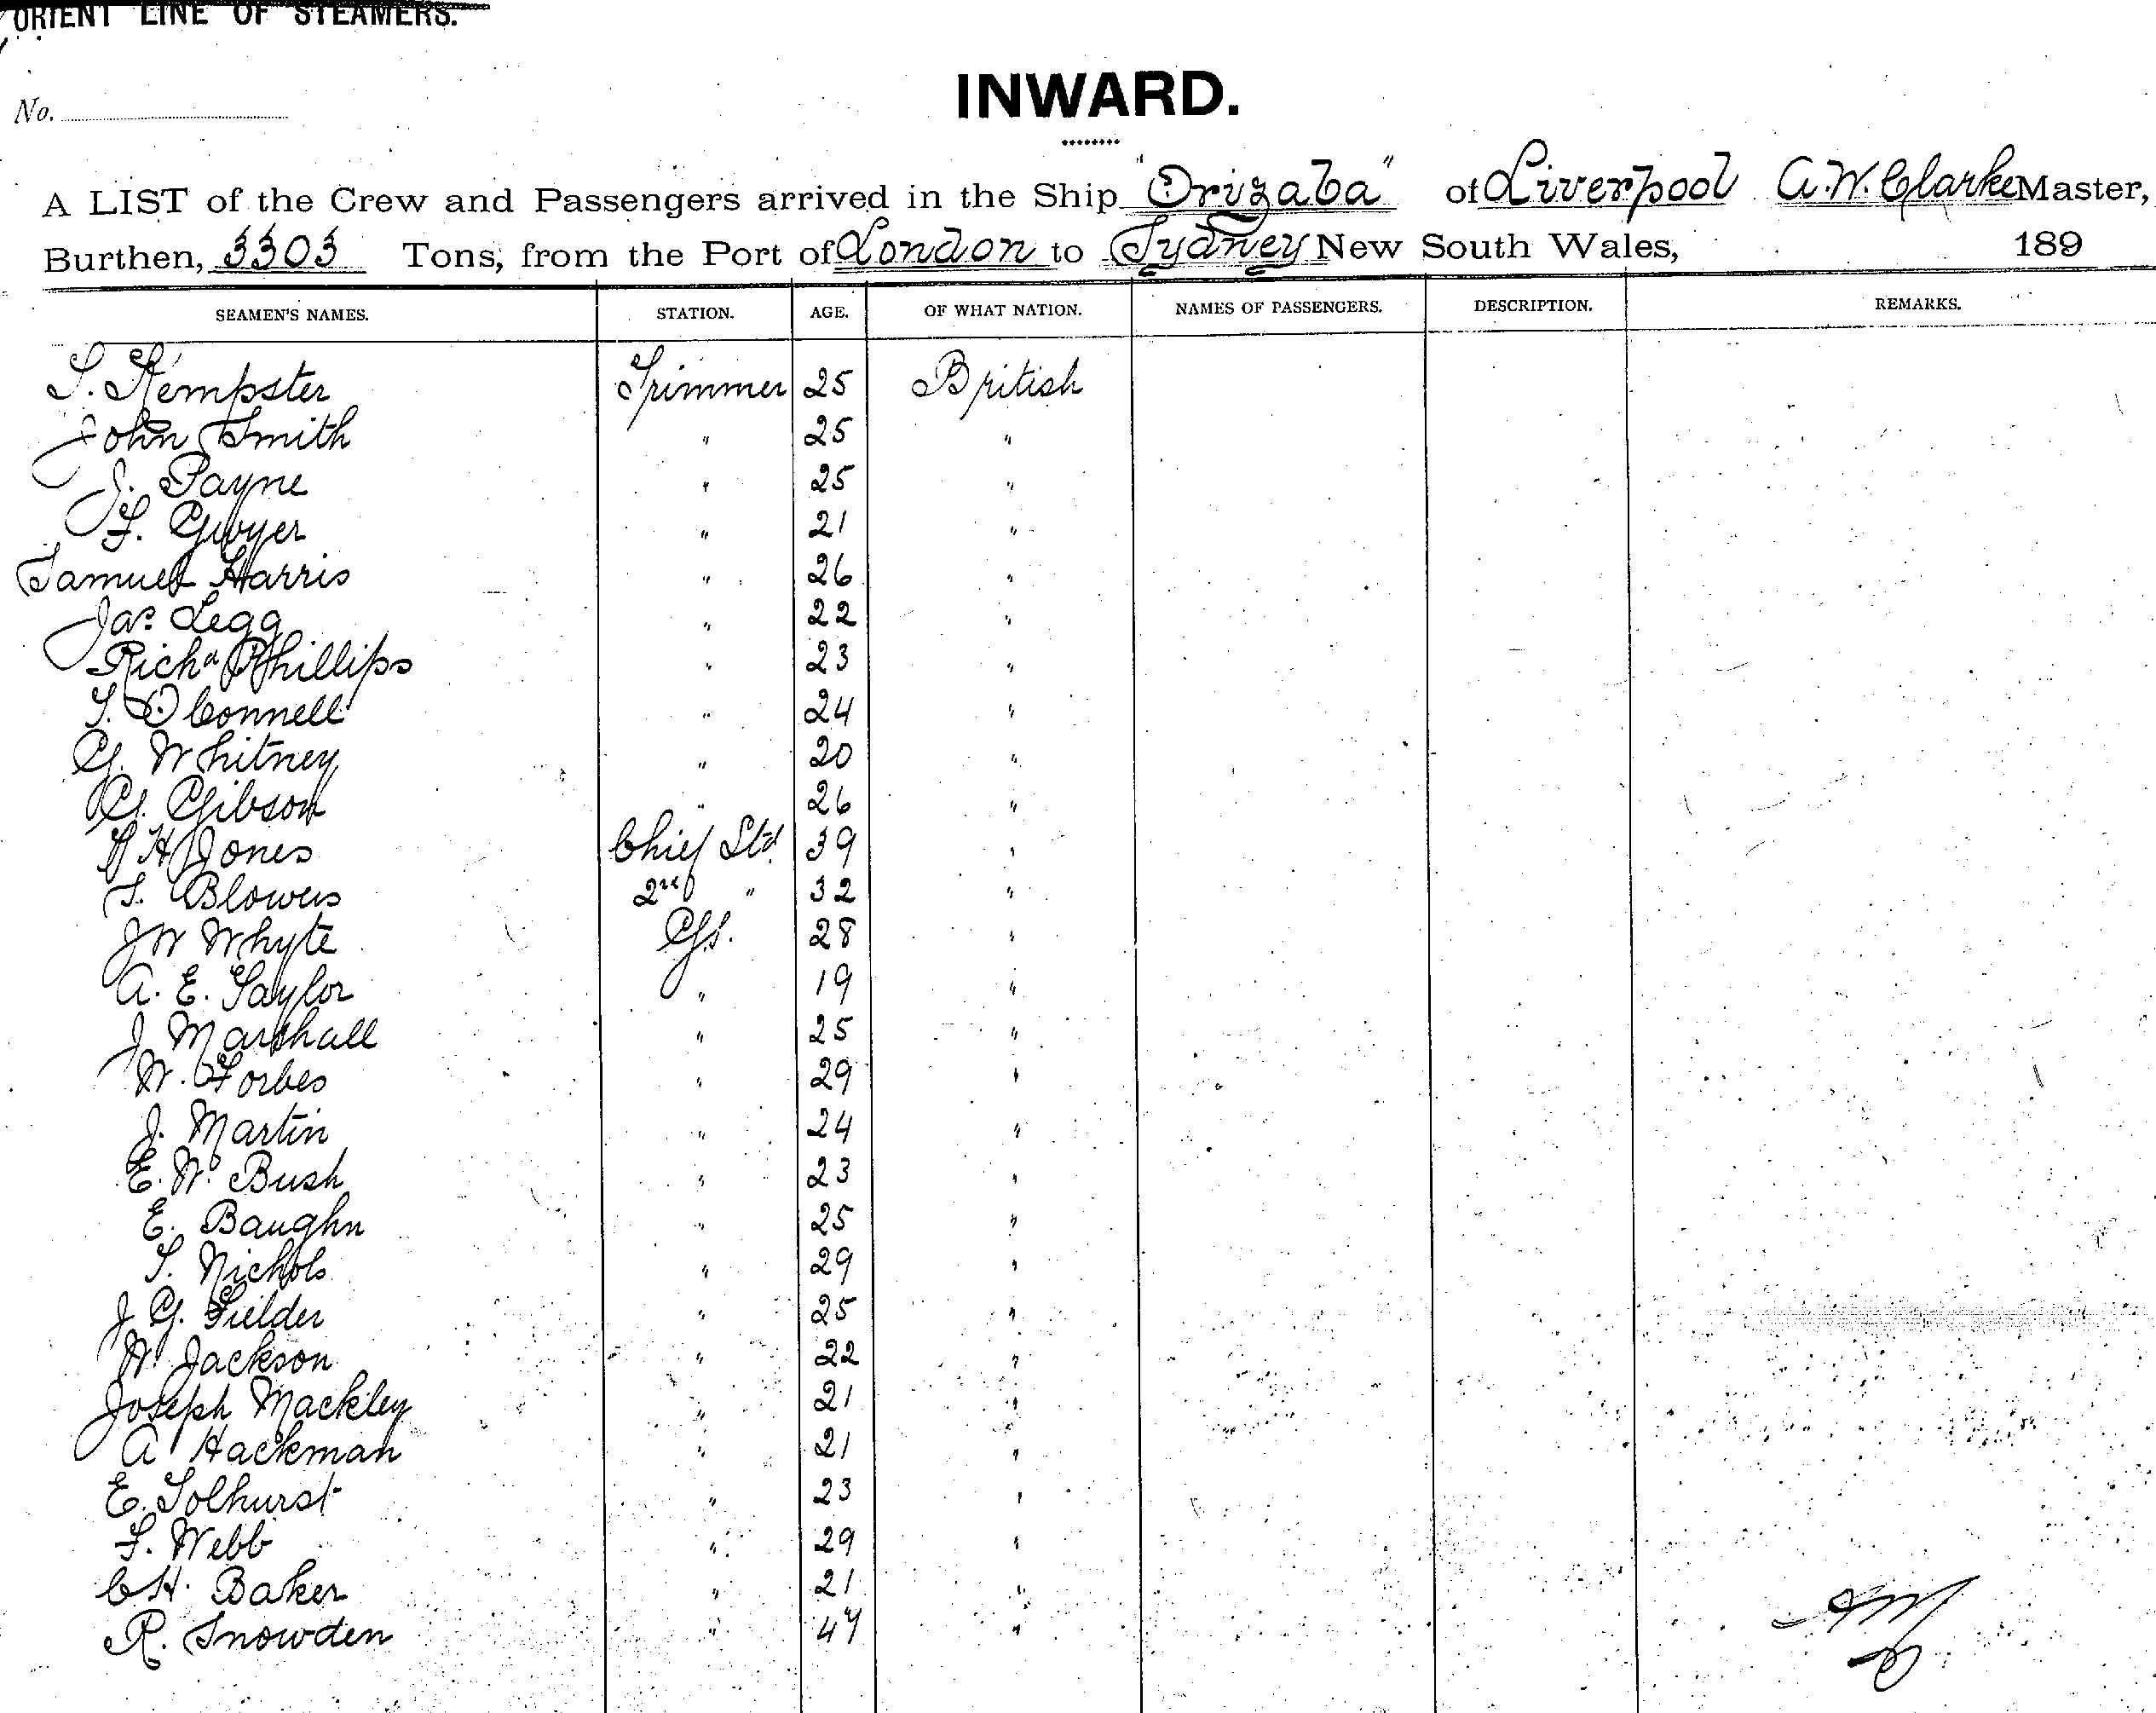 ORIENT LINE OF STEAMERS.
No.
INWARD.
A LIST of the Crew and Passengers arrived in the Ship "Orizaba" of Liverpool A.W. Clarke Master,
Burthen, 3303 Tons, from the Port of London to Sydney New South Wales, 189
SEAMEN'S NAMES. STATION. AGE. OF WHAT NATION. NAMES OF PASSENGERS. DESCRIPTION. REMARKS.
T. Kempster Trimmer 25 British
John Smith " 25 "
J. Payne " 25 "
F. Gwyer " 21 "
Samuel Harris " 26 "
Jas. Legg " 22 "
Richd Phillips " 23 "
T. O'Connell " 24 "
G. Whitney " 20 "
G. Gibson " 26 "
H Jones Chief Std. 39 "
T. Blowers 2nd " 32 "
JW Whyte G.S. 28 "
A. E. Taylor " 19 "
J Marshall " 25 "
W. Forbes " 29 "
J. Martin " 24 "
E. W. Bush " 23 "
E. Baughn " 25 "
T. Nichols " 29 "
J G. Fielder " 25 "
W. Jackson " 22 "
Joseph Mackley " 21 "
A Hackman " 21 "
E. Tolhurst " 23 "
F. Webb " 29 "
C H. Baker " 21 "
R. Snowden " 47 "